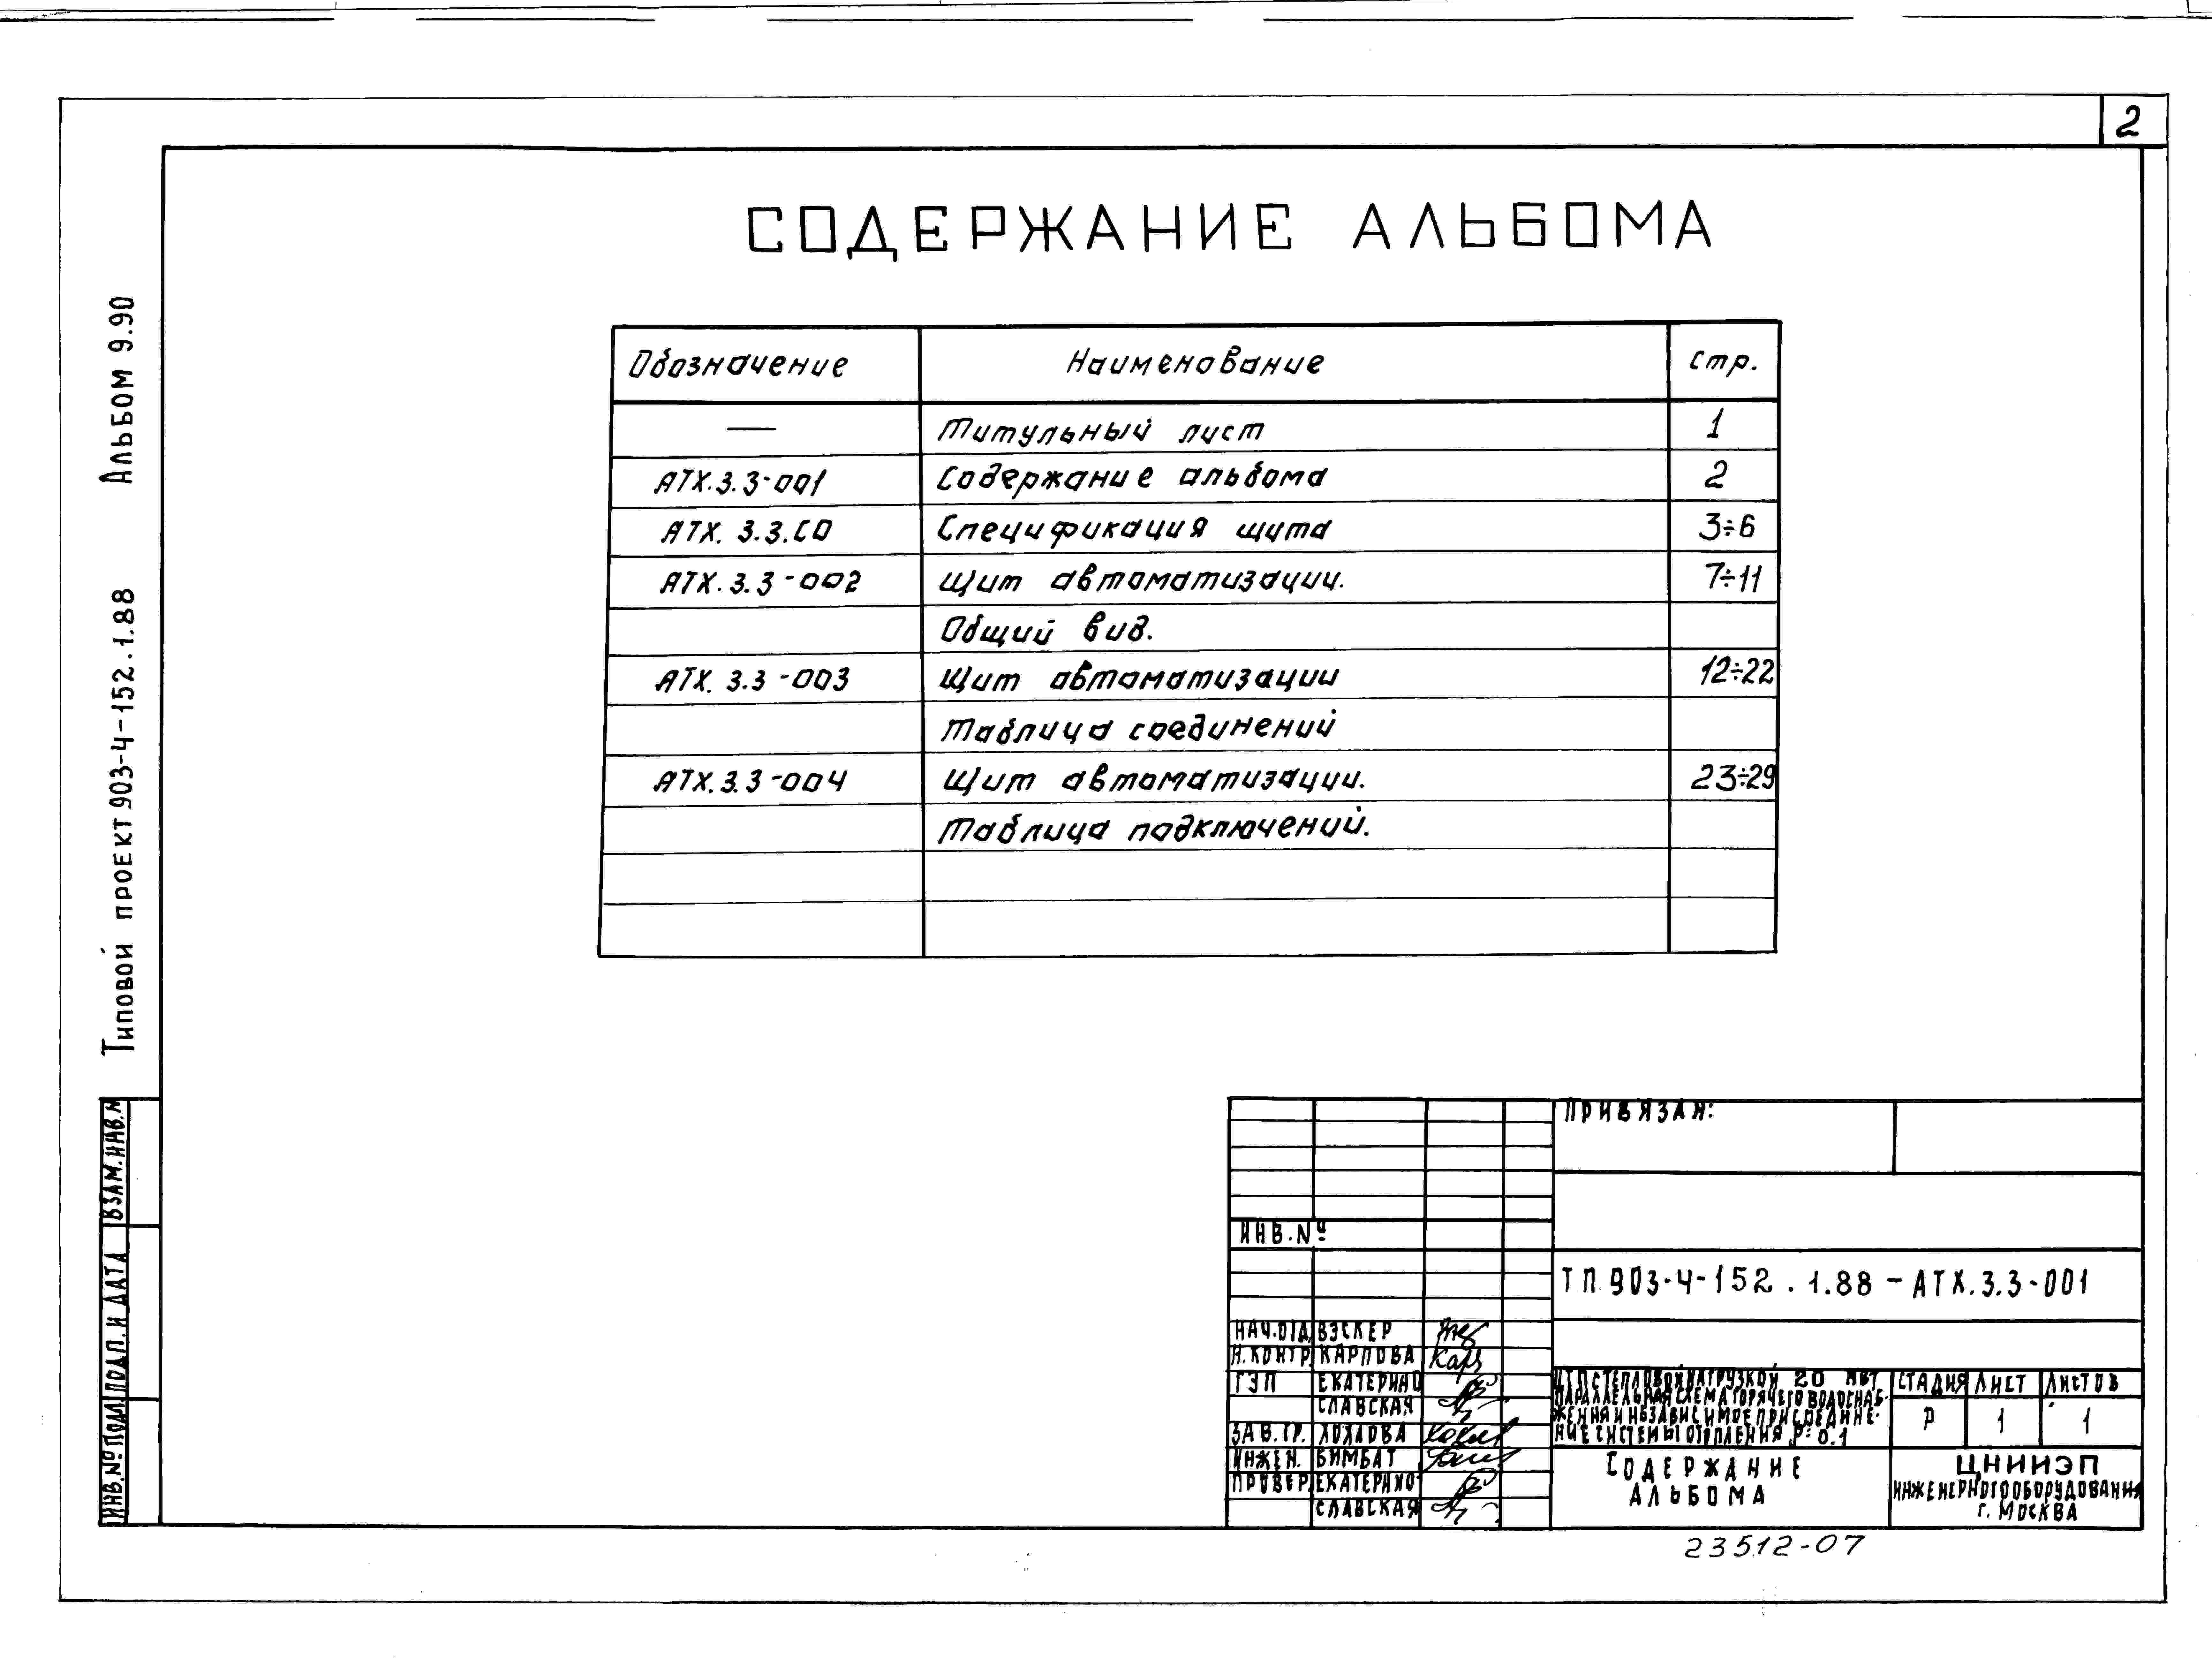 2
СОДЕРЖАНИЕ АЛЬБОМА
Альбом 9.90
Типовой проект 903-4-152.1.88
Обозначение Наименование стр.
— Титульный лист 1
АТХ.3.3-001 Содержание альбома 2
АТХ. 3.3.СО Спецификация щита 3÷6
АТХ.3.3-002 Щит автоматизации. 7÷11
Общий вид.
АТХ. 3.3-003 Щит автоматизации 12÷22
Таблица соединений
АТХ.3.3-004 Щит автоматизации. 23÷29
Таблица подключений.
ВЗАМ.ИНВ.№
ПОДП. И ДАТА
ИНВ.№ ПОДЛ
ПРИВЯЗАН:
ИНВ.№
ТП 903-4-152.1.88-АТХ.3.3-001
НАЧ.ОТД. ВЭСКЕР
Н.КОНТР. КАРПОВА
ГЭП ЕКАТЕРИНО
СЛАВСКАЯ
ЗАВ.ГР. ХОХЛОВА
ИНЖЕН. БИМБАТ
ПРОВЕР. ЕКАТЕРИНО
СЛАВСКАЯ
ЦТП С ТЕПЛОВОЙ НАГРУЗКОЙ 20 МВТ
ПАРАЛЛЕЛЬНАЯ СХЕМА ГОРЯЧЕГО ВОДОСНАБ-
ЖЕНИЯ И НЕЗАВИСИМОЕ ПРИСОЕДИНЕ-
НИЕ СИСТЕМЫ ОТОПЛЕНИЯ Р=0.1
СТАДИЯ ЛИСТ ЛИСТОВ
Р 1 1
СОДЕРЖАНИЕ
АЛЬБОМА
ЦНИИЭП
ИНЖЕНЕРНОГО ОБОРУДОВАНИЯ
г. МОСКВА
23512-07